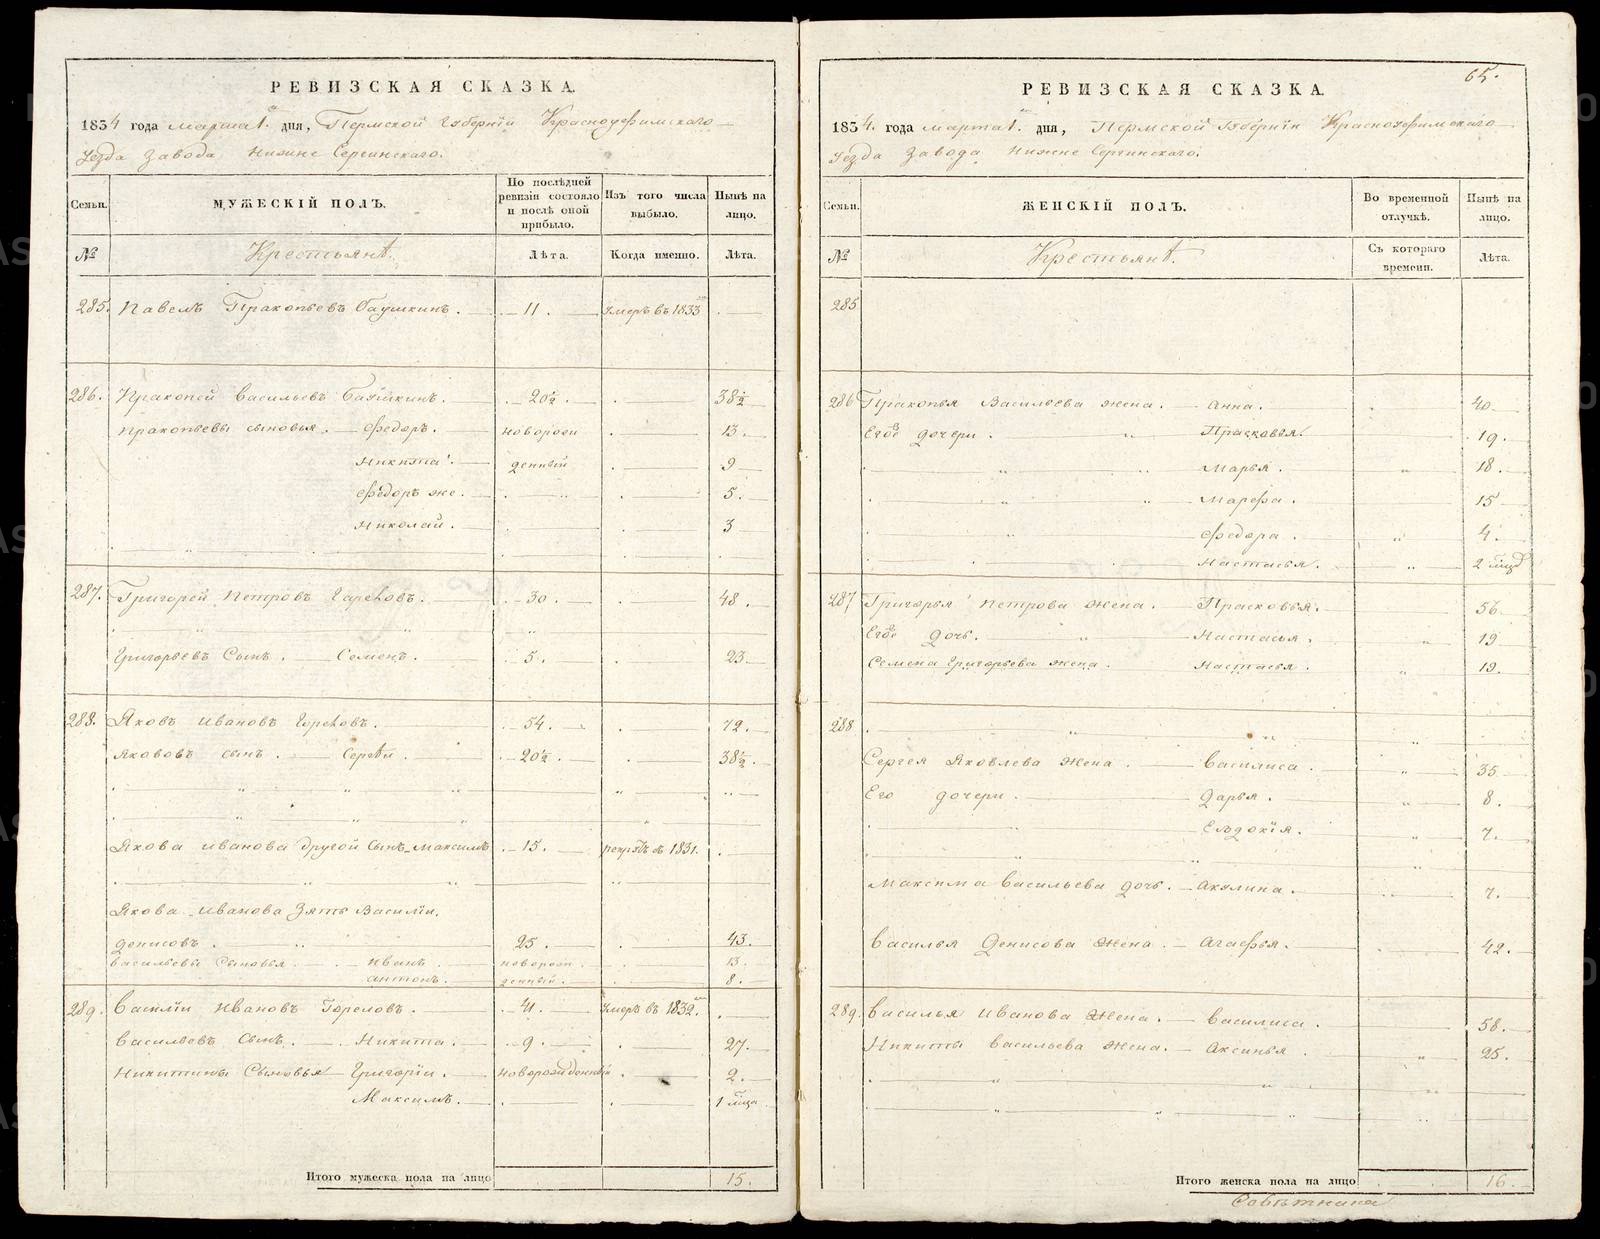 РЕВИЗСКАЯ СКАЗКА.
1834 года марта 1. дня, Пермской Губернїи Красноуфимскаго
Уезда Завода Нижне Сергинскаго.
Семьи. МУЖЕСКІЙ ПОЛЪ. По послѣдней ревизіи состояло и послѣ оной прибыло. Изъ того числа выбыло. Нынѣ на лицо.
№ Крестьянѣ. Лѣта. Когда именно. Лѣта.
285. Павелъ Пракопьевъ 11. умеръ въ 1833
286. Пракопей Васильевъ 20½. 38½
пракопьевы сыновья. Федоръ. новорож 13.
Никита. денный 9
Федоръ же. 5.
Николай. 3
287. Григорей Петровъ 30. 48.
Григорьевъ Сынъ. Семенъ. 5. 23.
288. Яковъ Ивановъ 54. 72.
Яковъ сынъ. Сергѣй 20½ 38½.
Якова иванова другой Сынъ Максимъ 15. въ 1831.
Якова Иванова Зять Василїи,
денисовъ. 25. 43.
васильевы Сыновья. иванъ. новорож 13.
антонъ. денный. 8.
289. Василїи Ивановъ Горелов. 41. умеръ въ 1832.
васильевъ Сынъ. Никита. 9. 27.
Никитины Сыновья Григорїи. новорожденныи 2.
Максимъ. 1 мца
Итого мужеска пола на лицо 15.
65.
РЕВИЗСКАЯ СКАЗКА.
1834. года марта 1. дня, Пермской Губернїи Красноуфимскаго
Уезда Завода Нижне Сергинскаго.
Семьи. ЖЕНСКІЙ ПОЛЪ. Во временной отлучкѣ. Нынѣ на лицо.
№ Крестьянѣ. Съ котораго времени. Лѣта.
285
286 Пракопья Васильева жена. Анна. 40
Его дочери. Прасковья. 19.
Марья. 18.
Марфа. 15
Федора. 4.
Настасья. 2
287 Григорья Петрова жена. Прасковья. 56
Его дочь. Настасья. 19
Семена Григорьева жена. Настасья. 19.
288
Сергея Яковлева жена. василиса. 35
Его дочери. дарья. 8.
Евдокїя. 7.
Максима васильева дочь. Акулина. 7.
василья Денисова жена. агафья. 42.
289. василья Иванова жена. василиса. 58.
Никиты васильева жена. Аксинья. 25.
Итого женска пола на лицо 16.